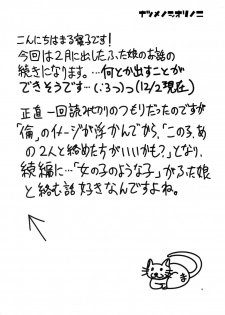 ナツメノシオリノニ
こんにちはまる寝子です!
今回は2月に出したふた娘のお話の
続きになります。…何とか出すことが
できそうです…(:3っ)っ(12/2現在)
正直一回読み切りのつもりだったのですが
「倫」のイメージが浮かんでから、「このろ、あ
の2人と絡めた方がいいかも?」となり、
続編に…「女の子のような子」がふた娘
と絡む話好きなんですよね。
ま